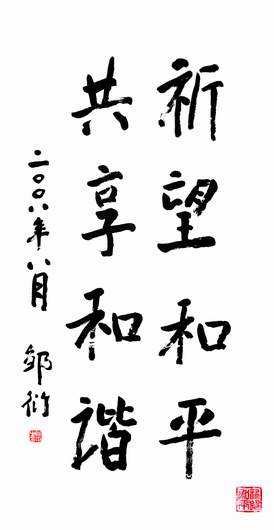 祈望和平
共享和谐
二〇〇八年八月
邹衍